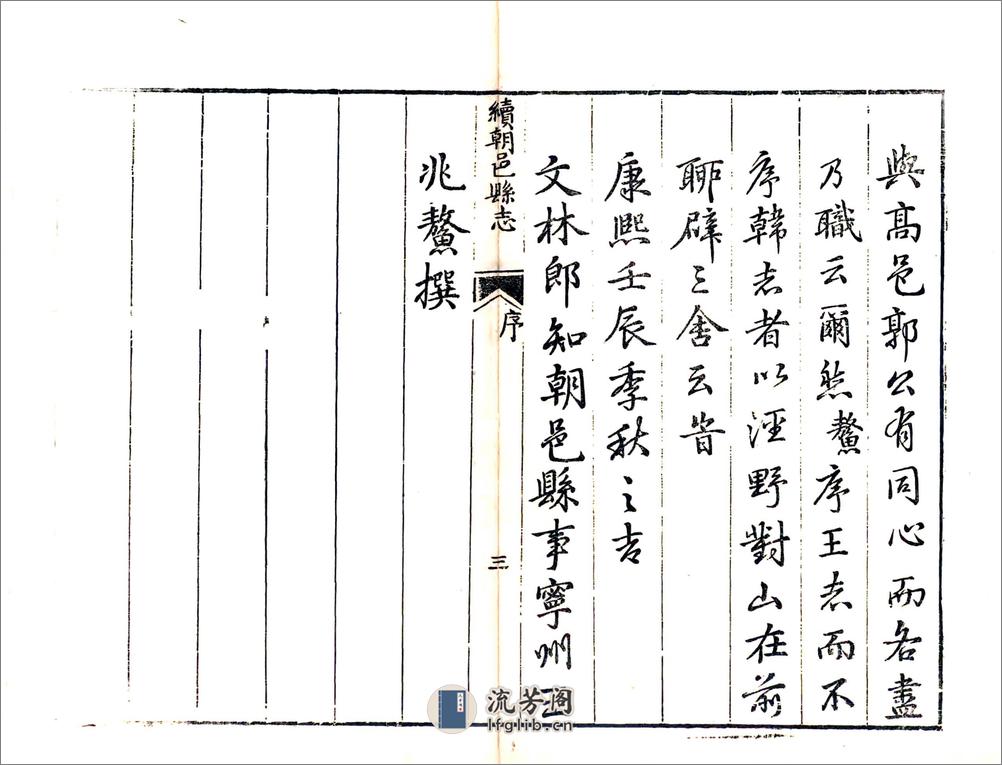 與高邑郭公有同心而各盡
乃職云爾然鰲序王志而不
序韓志者以涇野對山在前
聊辟三舍云旹
康熙壬辰季秋之吉
文林郎知朝邑縣事寧州王
續朝邑縣志
序
三
兆鰲撰
流芳阁
lfglib.cn